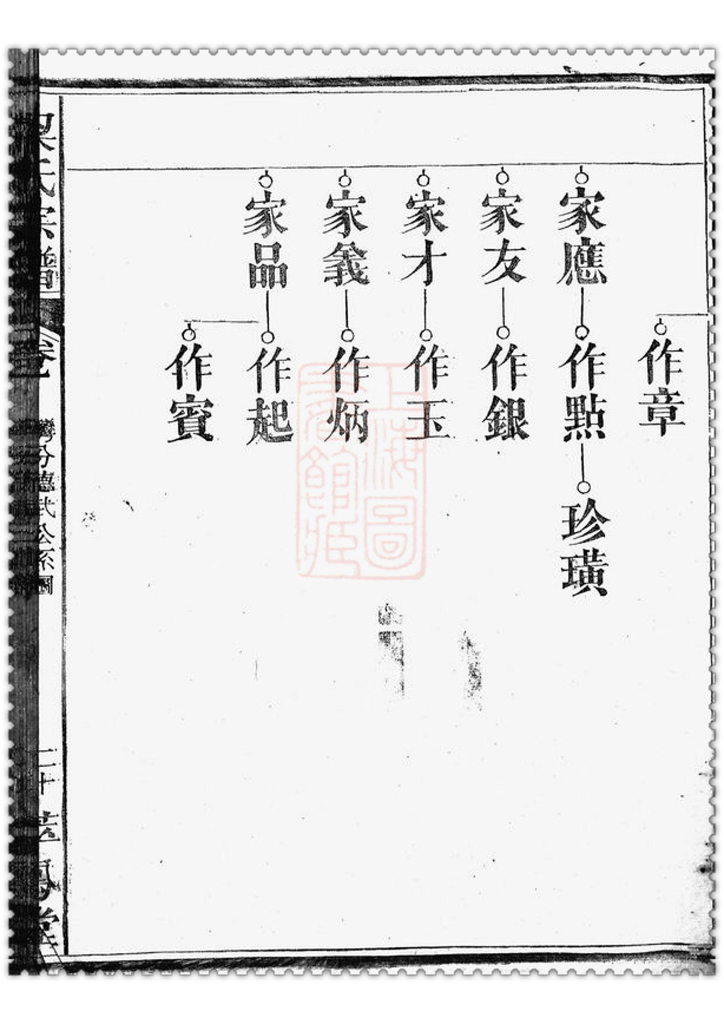 作章
家應
作點
珍璜
家友
作銀
家才
作玉
家義
作炳
家品
作起
作賓
氏宗譜
卷
分德武公系圖
二十
鳳堂
上海圖書館藏